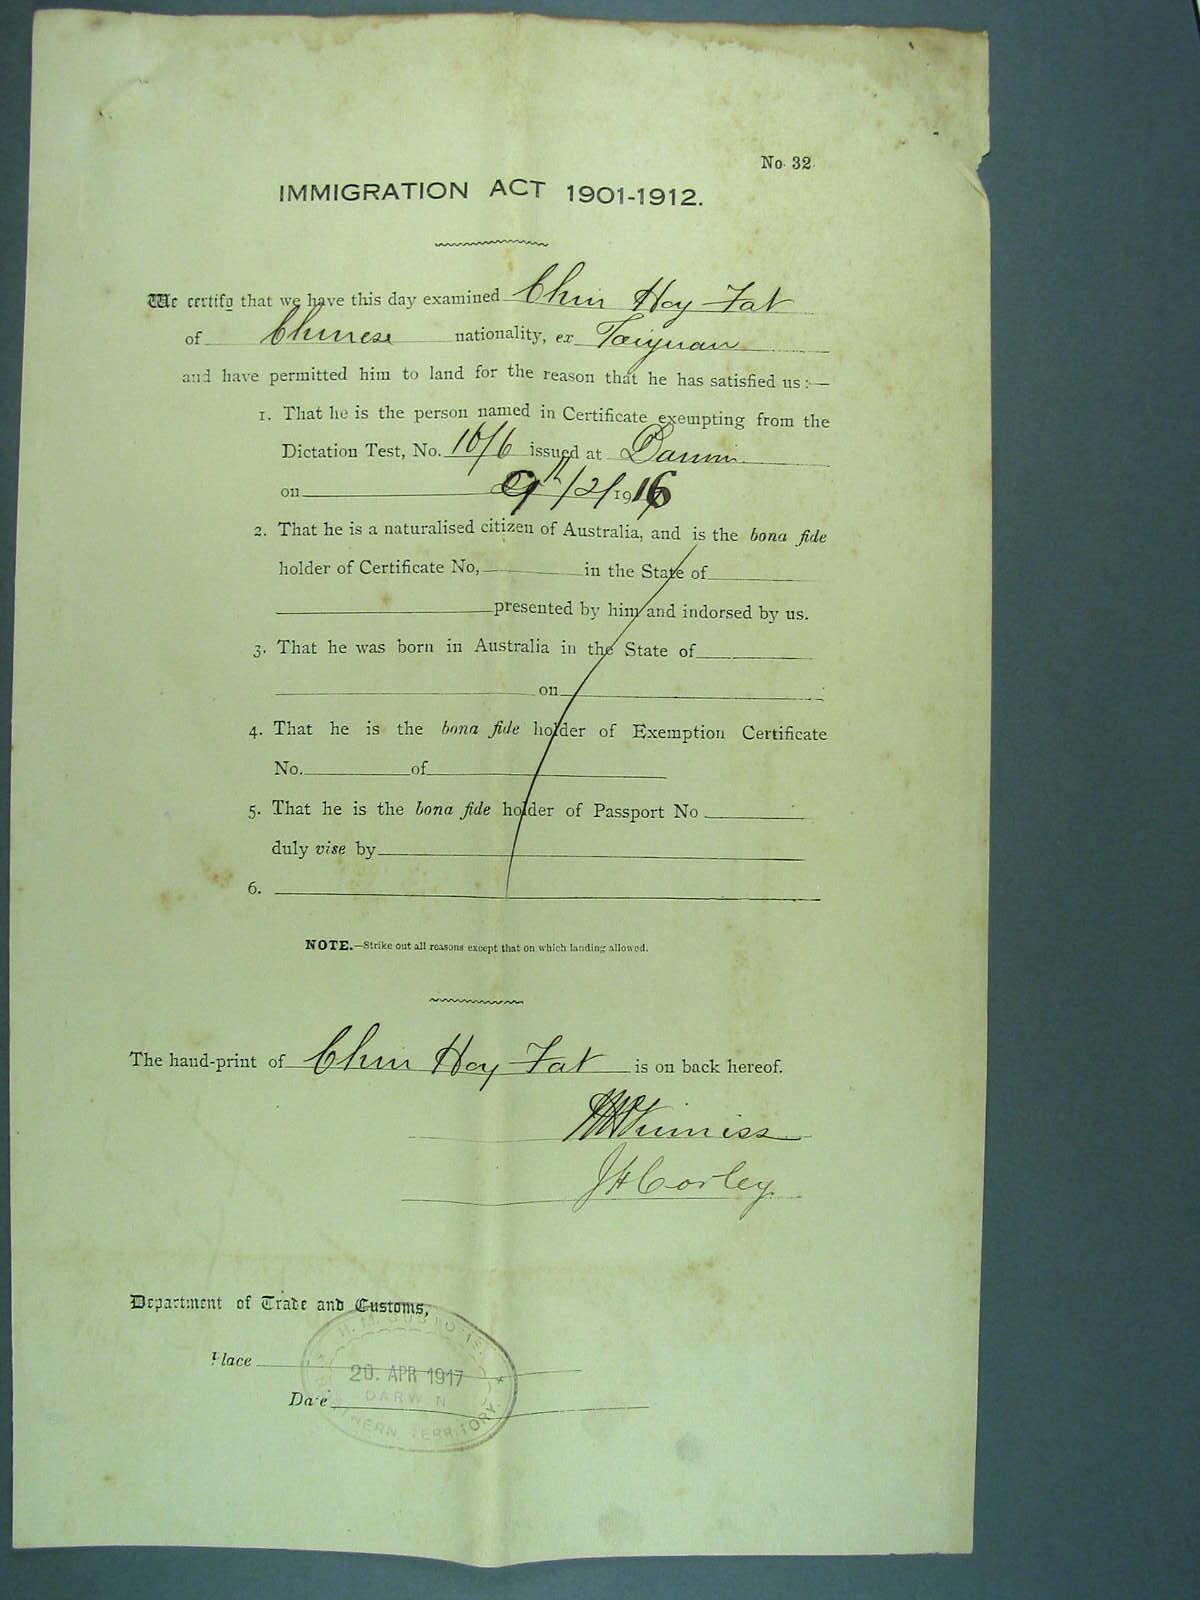 No. 32.
IMMIGRATION ACT 1901-1912.
We certify that we have this day examined Chin Hoy Fat
of Chinese nationality, ex Taiyuan
and have permitted him to land for the reason that he has satisfied us :—
1. That he is the person named in Certificate exempting from the
Dictation Test, No. 16/6 issued at Darwin
on 9th/2/1916
2. That he is a naturalised citizen of Australia, and is the bona fide
holder of Certificate No, in the State of
presented by him and indorsed by us.
3. That he was born in Australia in the State of
on
4. That he is the bona fide holder of Exemption Certificate
No. of
5. That he is the bona fide holder of Passport No
duly vise by
6.
NOTE.—Strike out all reasons except that on which landing allowed.
The hand-print of Chin Hoy Fat is on back hereof.
JHCorley
Department of Trade and Customs,
H.M. CUSTOMS
Place
20. APR 1917
DARWIN
Date
NORTHERN TERRITORY